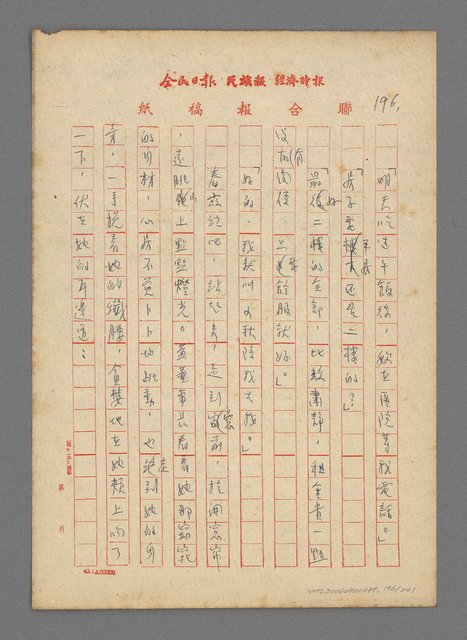 全民日報 民族報 經濟時報
聯合報稿紙
196.
「明天吃過午飯後,妳在醫院等我電話。」
「房子要樓下還是二樓的?」
「最好二樓的全部,比較肅靜,租金貴一點
沒有關係,只是舒服就好。」
「好的,我就叫秋陪我去找。」
春霞說吧,站起來,走到窗前,拉開窗帘
,遠眺上點點燈光。黃董事長看着她那窈窕
的身材,心房不覺卜卜地跳動,也走到她的身
旁,一手挽着她的纖腰,貪婪地在她頰上吻了
一下,伏在她的耳邊道:
第 頁
42.1.250000
196/241